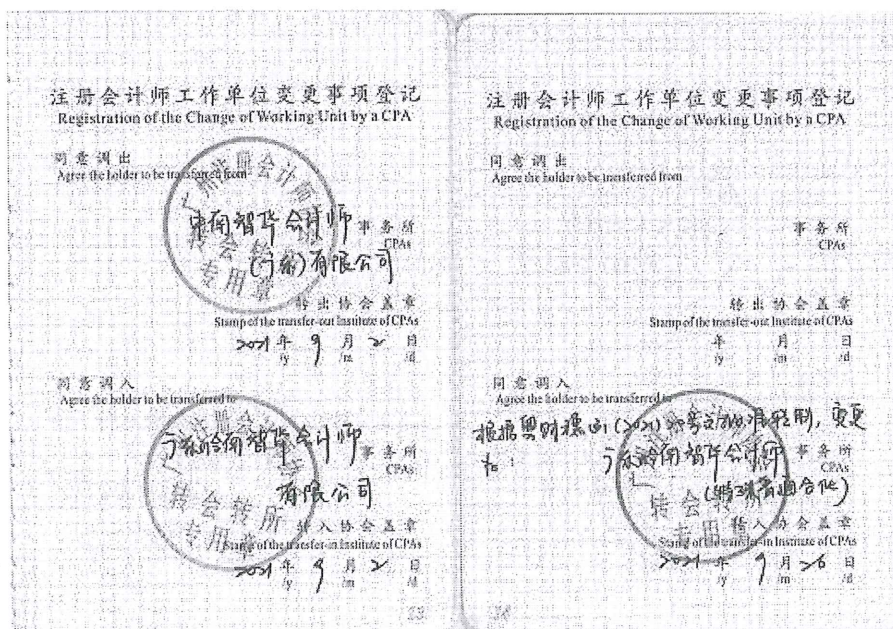 注册会计师工作单位变更事项登记
Registration of the Change of Working Unit by a CPA
同意调出
Agree the holder to be transferred from
智华会计师
事务所
CPAs
有限公司
转出协会盖章
Stamp of the transfer-out Institute of CPAs
2021年9月2日
/y /m /d
同意调入
Agree the holder to be transferred to
广东岭南智华会计师
事务所
CPAs
有限公司
转入协会盖章
Stamp of the transfer-in Institute of CPAs
2021年9月2日
/y /m /d
广州注册会计师
转会转所
专用章
23
注册会计师工作单位变更事项登记
Registration of the Change of Working Unit by a CPA
同意调出
Agree the holder to be transferred from
事务所
CPAs
转出协会盖章
Stamp of the transfer-out Institute of CPAs
年 月 日
/y /m /d
同意调入
Agree the holder to be transferred to
根据粤财穗函(2021) 变更
为:
广东岭南智华会计师
事务所
CPAs
(特殊普通合伙)
转入协会盖章
Stamp of the transfer-in Institute of CPAs
2021年9月26日
/y /m /d
转会转所
专用章